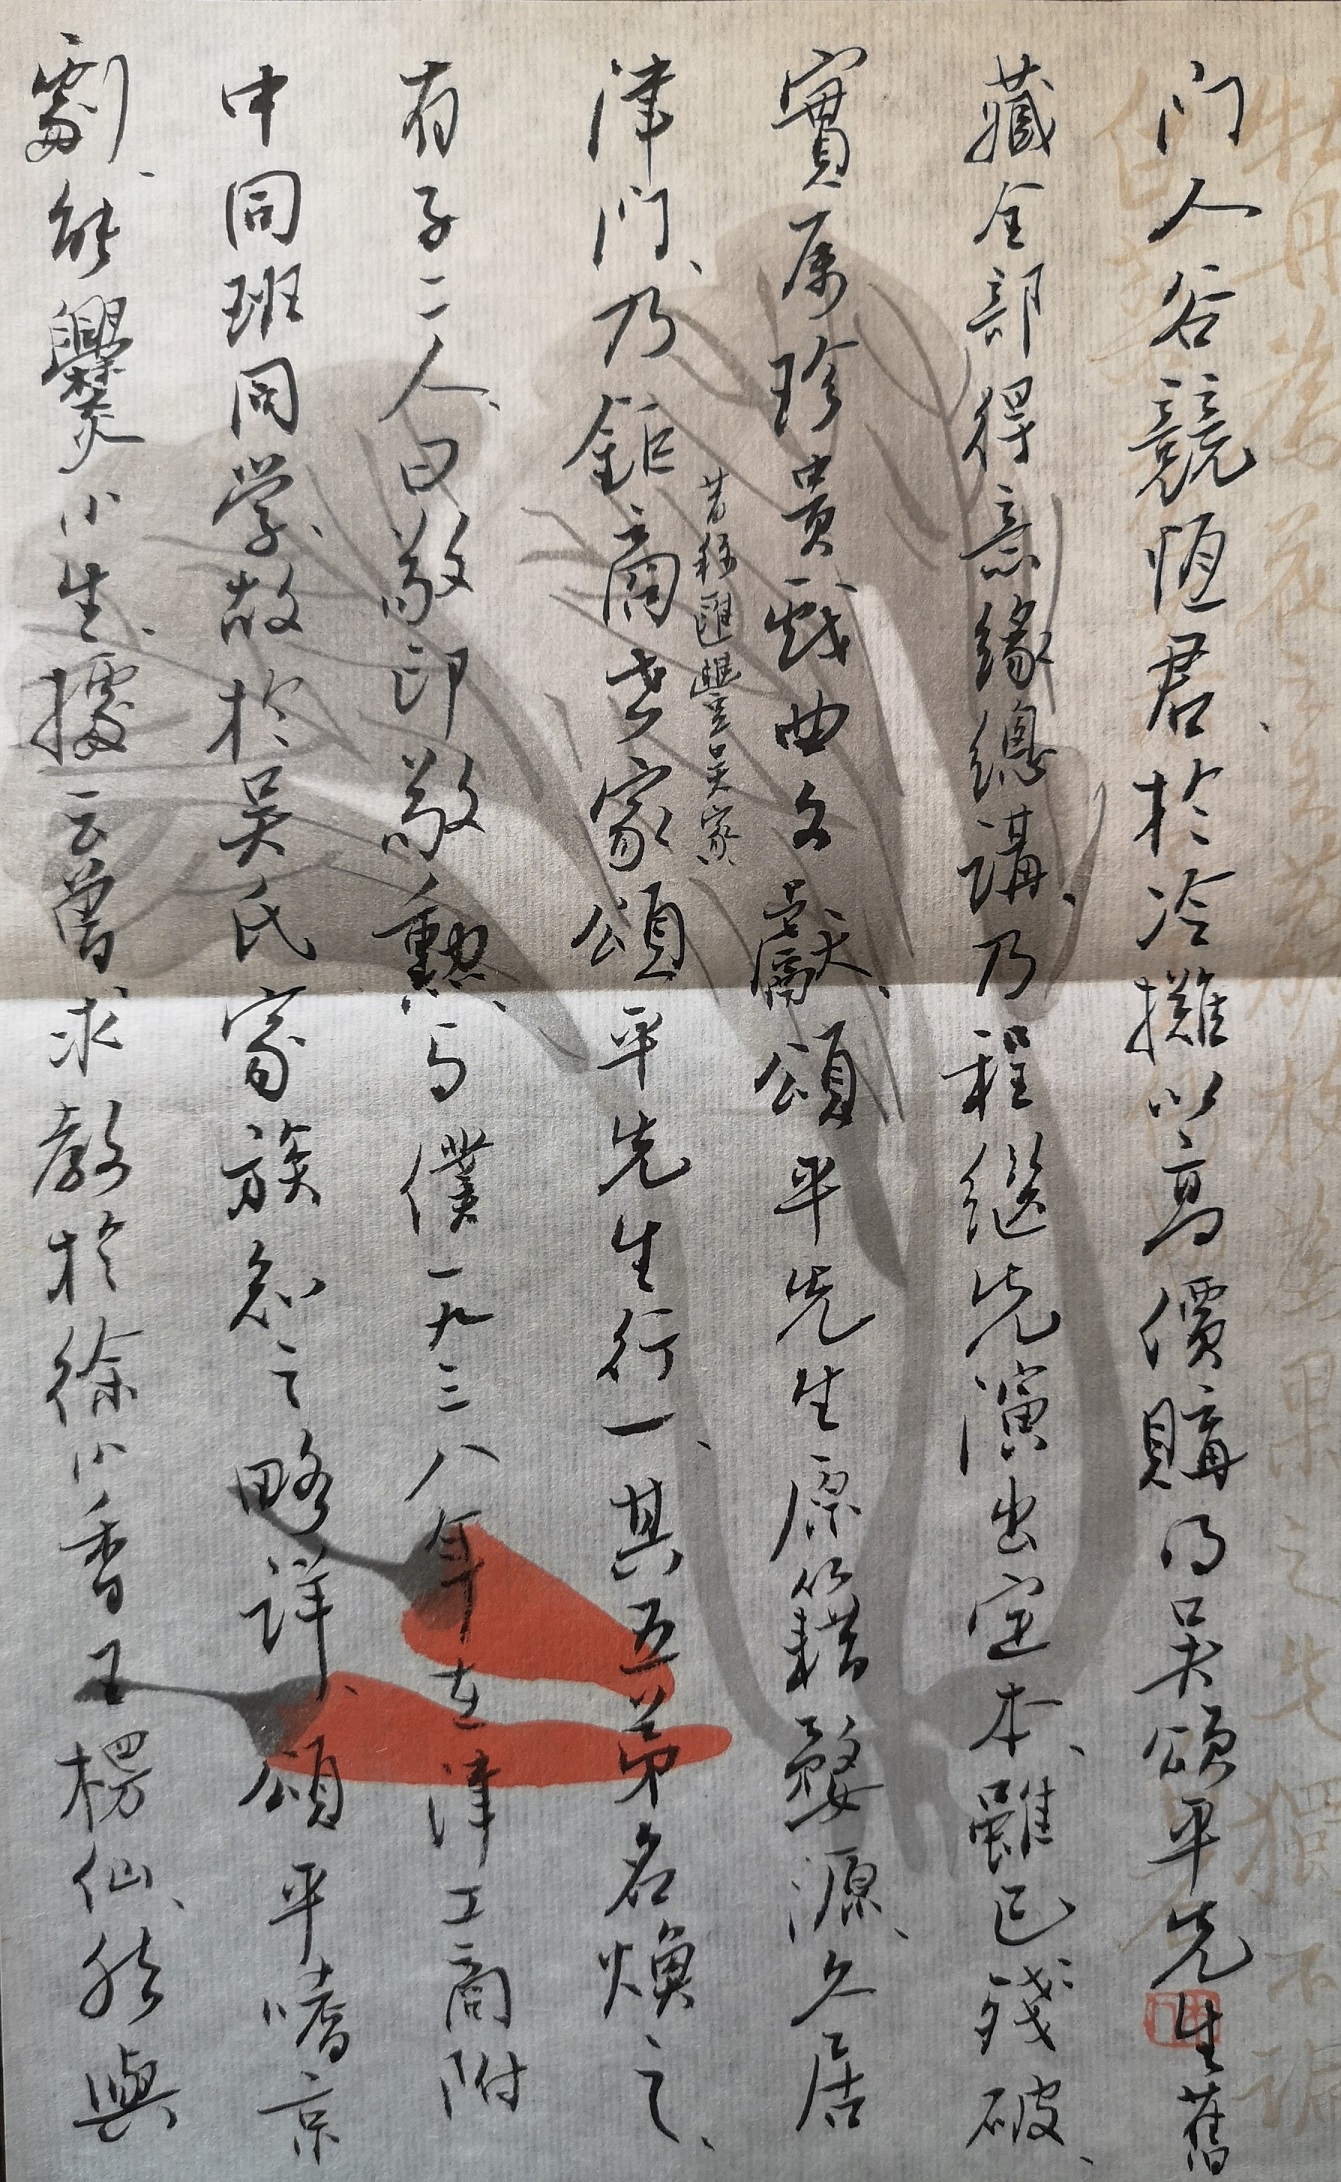 门人谷競恆君、於冷攤以高價購得吴頌平先生舊
藏全部得意緣總講、乃程继先演出定本、雖已殘破、
實屬珍貴戏曲文獻、頌平先生原籍婺源、久居
津门、乃鉅商世家頌平先生行一、其五弟名焕之、
昔稱匯豐吴家
有子二人、曰敬印敬勳、与僕一九三八年在津工商附
中同班同学、故於吴氏家族知之略详、頌平嗜京
劇、能爨小生、據云曽求教於徐小香王楞仙、然與